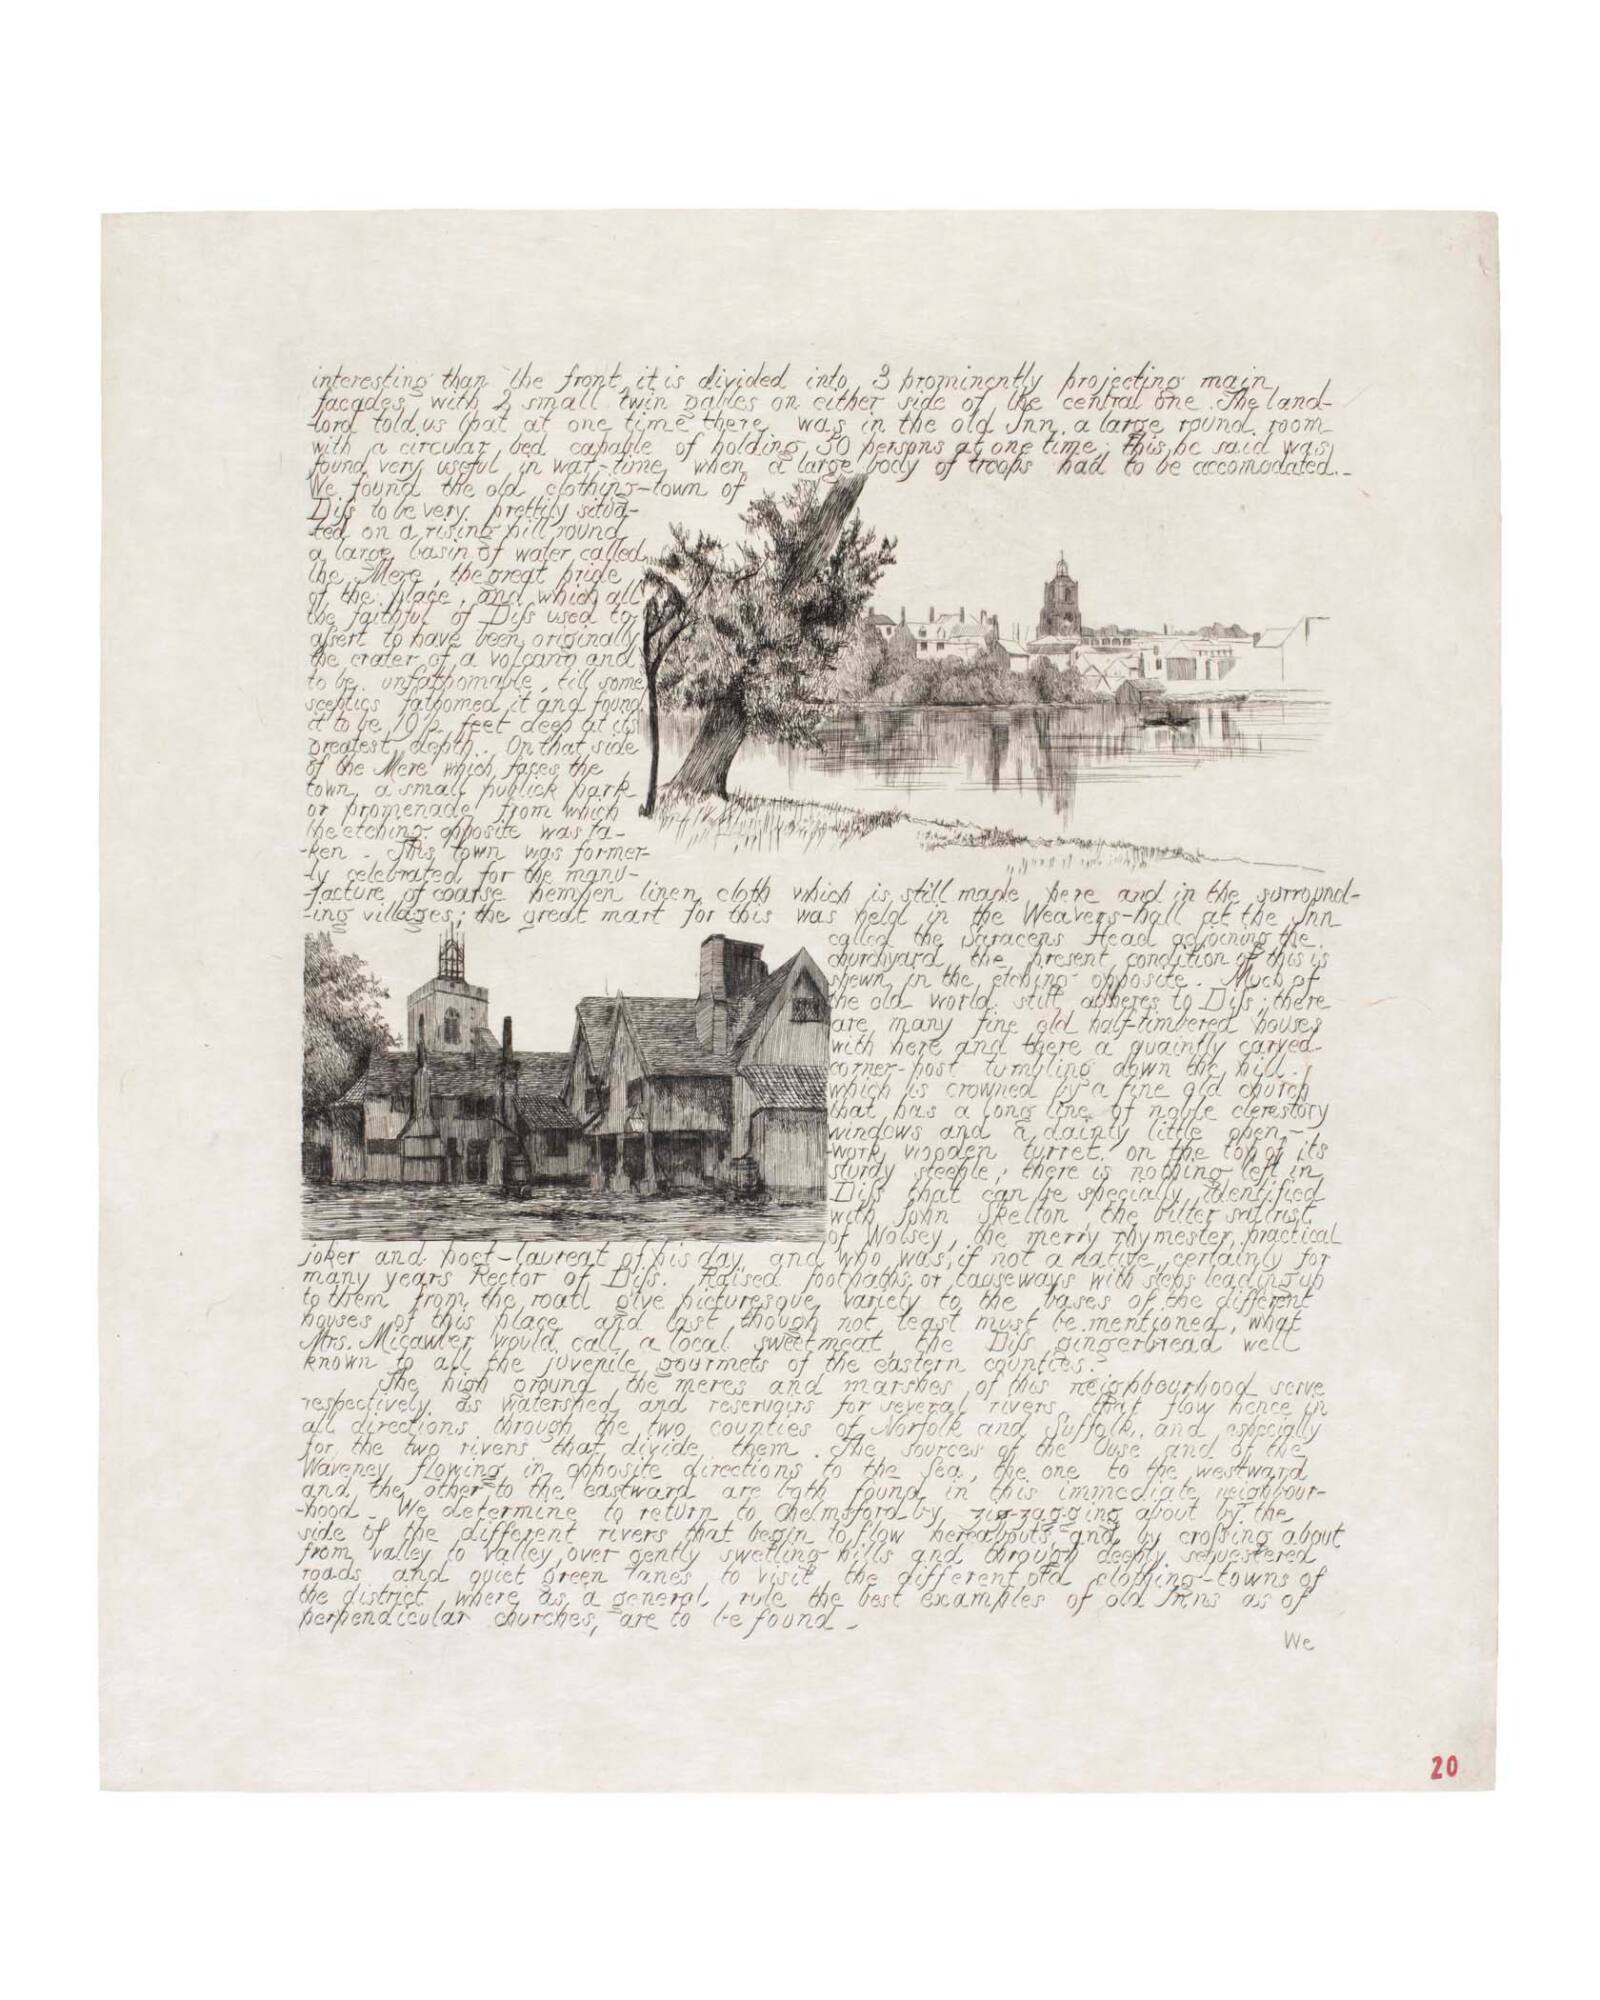 interesting than the front, it is divided into 3 prominently projecting main
façades with 2 small twin gables on either side of the central one. The land-
-lord told us that at one time there was in the old Inn a large round room
with a circular bed capable of holding 30 persons at one time; this, he said was
found very useful in war-time, when a large body of troops had to be accomodated.-
We found the old clothing-town of
Diſs to be very prettily situa-
-ted on a rising hill round
a large basin of water called
the Mere, the great pride
of the place, and which all
the faithful of Diſs used to
aſsert to have been originally
the crater of a volcano and
to be unfathomable, till some
sceptics fathomed it and found
it to be 10½ feet deep at its
greatest depth. On that side
of the Mere which faces the
town, a small publick park
or promenade from which
the etching opposite was ta-
-ken. This town was former-
-ly celebrated for the manu-
-facture of coarse hempen linen cloth which is still made here and in the surround-
-ing villages; the great mart for this was held in the Weavers-hall at the Inn
called the Saracens Head adjoining the
churchyard, the present condition of this is
shewn in the etching opposite. Much of
the old world still adheres to Diſs; there
are many fine old half-timbered houses
with here and there a quaintly carved
corner-post tumbling down the hill
which is crowned by a fine old church
that has a long line of noble clerestory
windows and a dainty little open-
-work wooden turret on the top of its
sturdy steeple; there is nothing left in
Diſs that can be specially identified
with John Skelton, the bitter satirist
of Wolsey, the merry rhymester, practical
joker and poet-laureat of his day, and who was, if not a native, certainly for
many years Rector of Diſs. Raised footpaths or causeways with steps leading up
to them from the road give picturesque variety to the bases of the different
houses of this place and last though not least must be mentioned, what
Mrs. Micawber would call a local sweetmeat, the Diſs gingerbread well
known to all the juvenile gourmets of the eastern counties.-
The high ground the meres and marshes of this neighbourhood serve
respectively as watershed and reservoirs for several rivers that flow hence in
all directions through the two counties of Norfolk and Suffolk, and especially
for the two rivers that divide them. The sources of the Ouse and of the
Waveney flowing in opposite directions to the Sea, the one to the westward
and the other to the eastward are both found in this immediate neighbour-
-hood. We determine to return to Chelmsford by zig-zag-ging about by the
side of the different rivers that begin to flow hereabouts, and by croſsing about
from valley to valley, over gently swelling hills and through deeply sequestered
roads and quiet green lanes to visit the different old clothing-towns of
the district, where as a general rule the best examples of old Inns as of
perpendicular churches, are to be found -
We
20